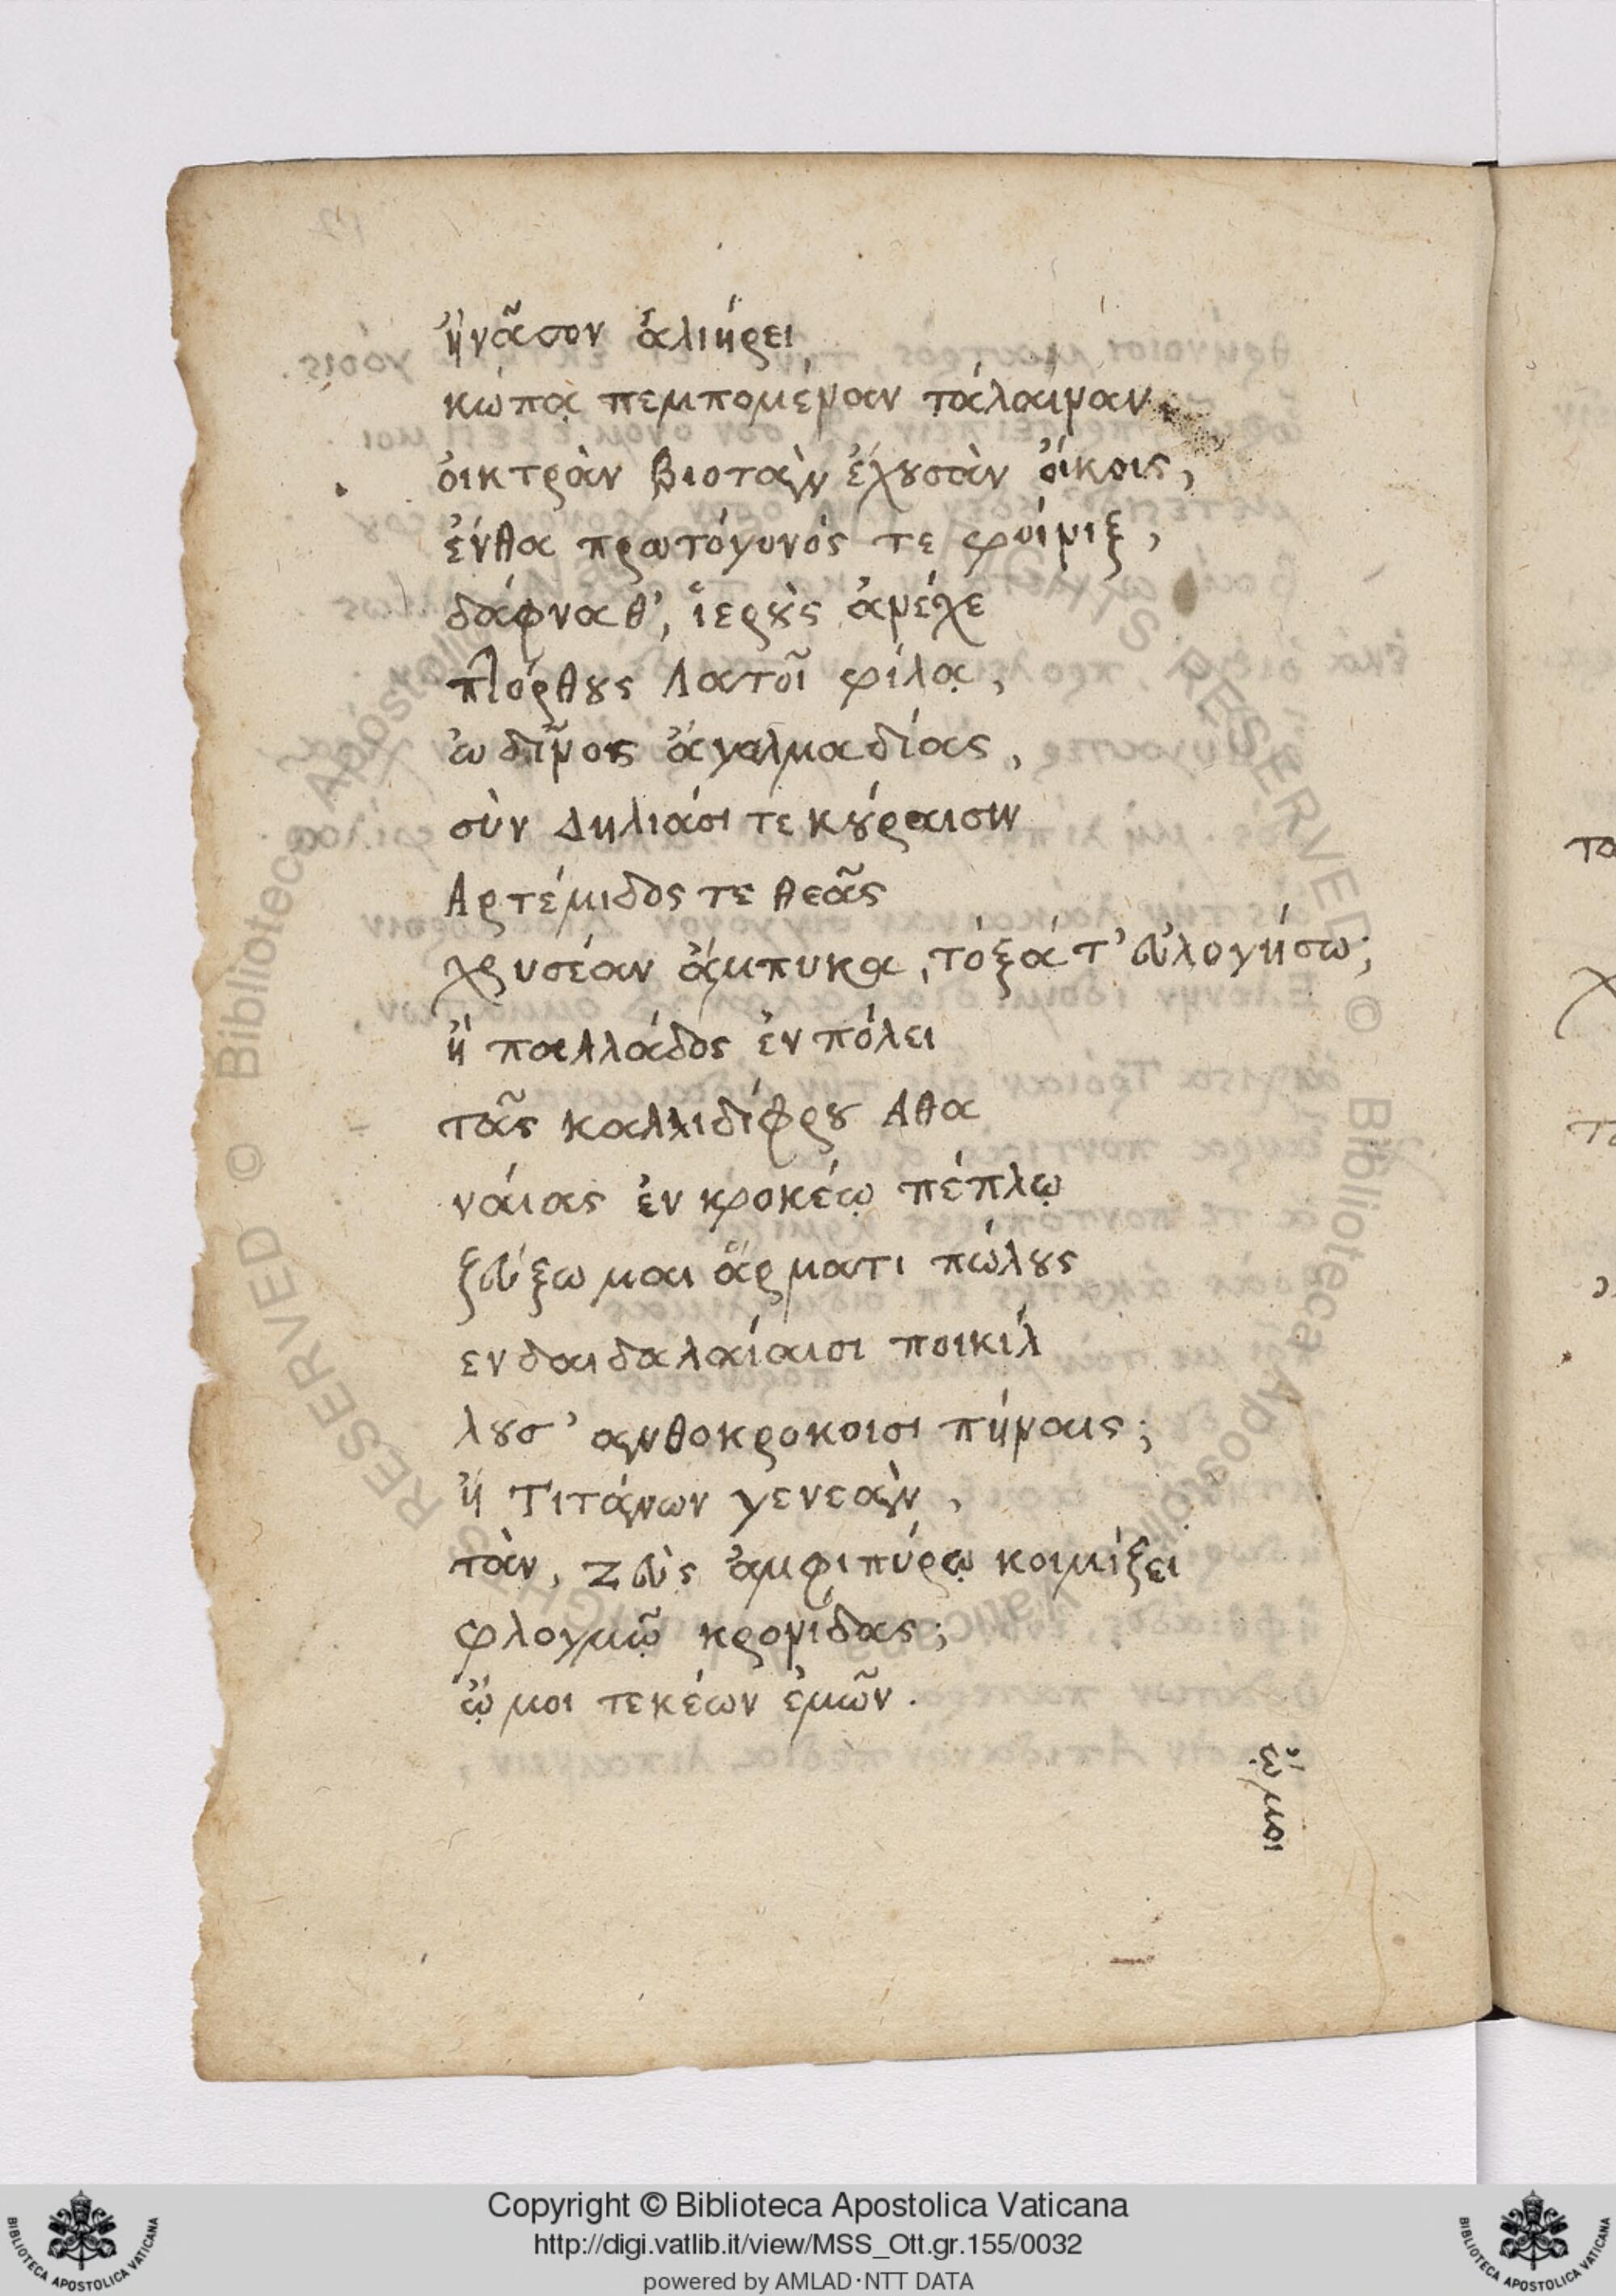 ἢ νᾶσον ἁλιήρει
κώπᾳ πεμπομέναν τάλαιναν,
οἰκτρὰν βιοτὰν ἔχουσαν οἴκοις,
ἔνθα πρωτόγονός τε φοίνιξ,
δάφνα θ', ἱεροὺς ἀνέχε
πτόρθους Λατοῖ φίλᾳ,
ὠδῖνος ἄγαλμα δίας,
σὺν Δηλιάσι τε κούραισιν
Αρτέμιδος τε θεᾶς
χρυσέαν ἄμπυκα, τόξά τ' εὐλογήσω;
ἢ παλλάδος ἐν πόλει
τᾶς καλλιδίφρου Αθα
νάιας ἐν κροκέῳ πέπλῳ
ξεύξωμαι ἅρματι πώλους
εν δαιδαλαίαισι ποικίλ
λουσ' ανθοκροκοισι πήναις;
ἢ Τιτάνων γενεὰν,
τὰν, Ζεὺς ἀμφιπύρῳ κοιμίξει
φλογμῷ κρονίδας;
ᾤμοι τεκέων ἐμῶν.
ᾤμοι
Copyright © Biblioteca Apostolica Vaticana
http://digi.vatlib.it/view/MSS_Ott.gr.155/0032
powered by AMLAD·NTT DATA